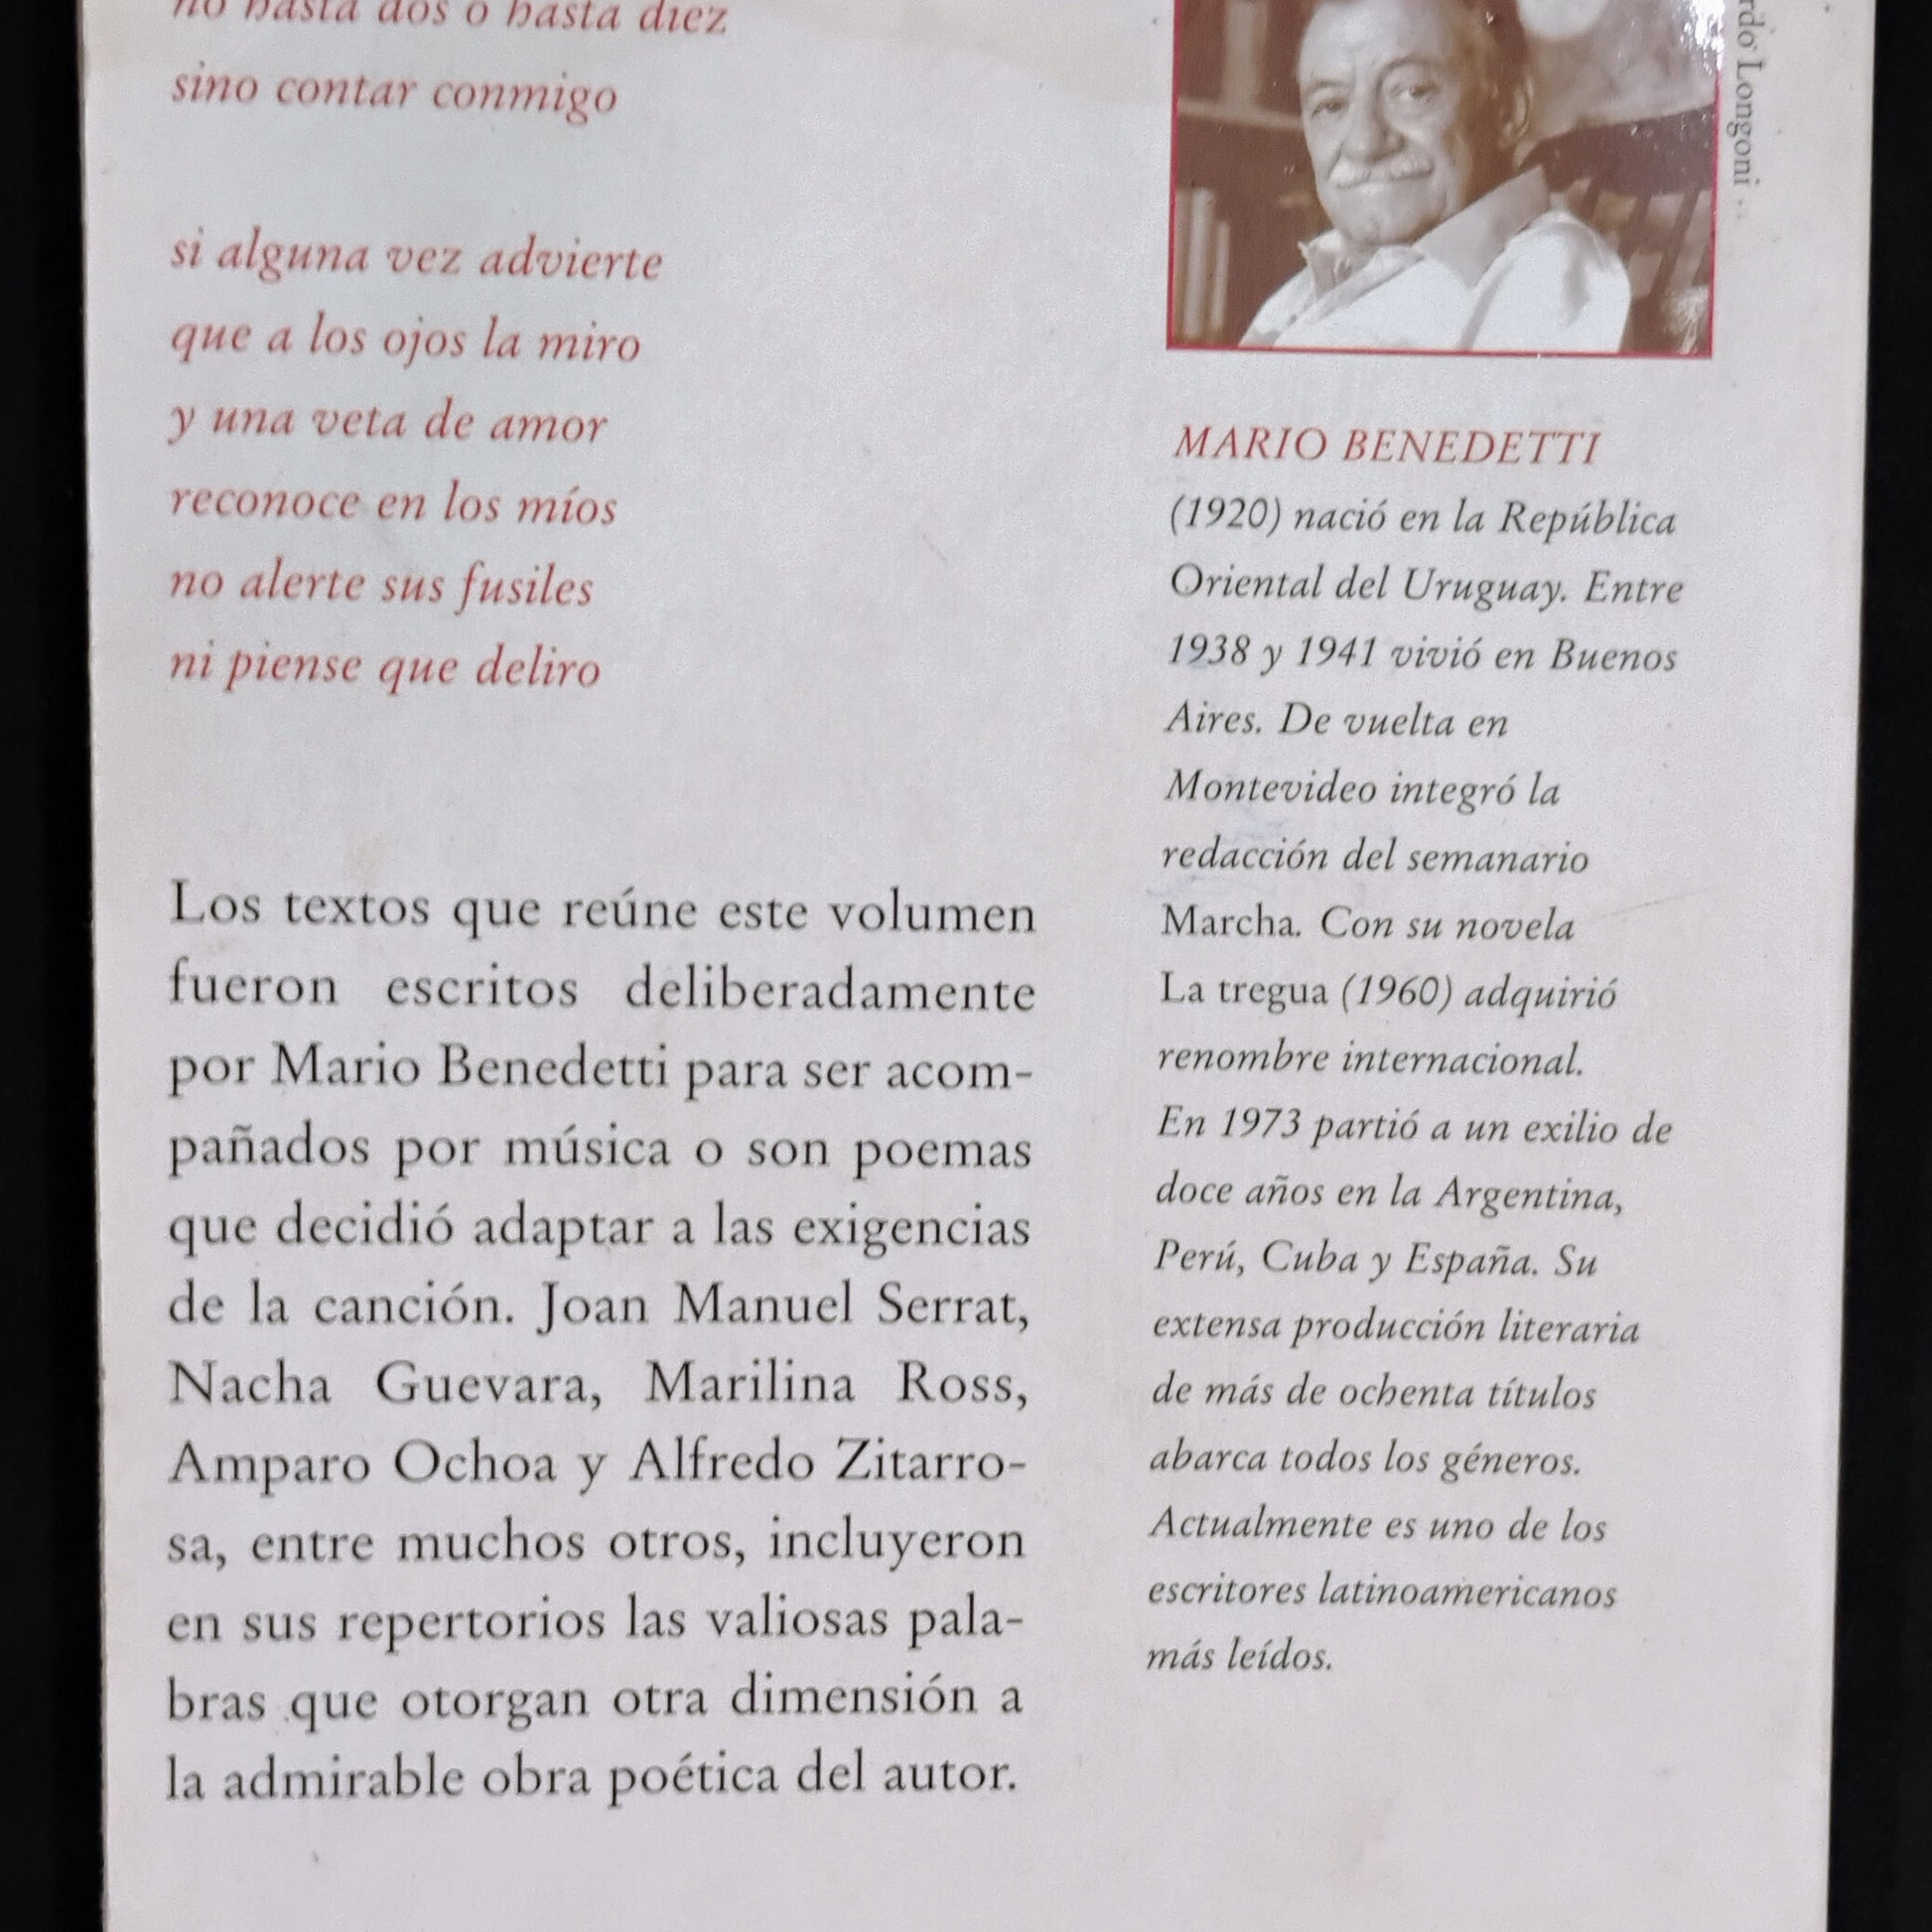 no hasta dos o hasta diez
sino contar conmigo
si alguna vez advierte
que a los ojos la miro
y una veta de amor
reconoce en los míos
no alerte sus fusiles
ni piense que deliro
Los textos que reúne este volumen
fueron escritos deliberadamente
por Mario Benedetti para ser acom-
pañados por música o son poemas
que decidió adaptar a las exigencias
de la canción. Joan Manuel Serrat,
Nacha Guevara, Marilina Ross,
Amparo Ochoa y Alfredo Zitarro-
sa, entre muchos otros, incluyeron
en sus repertorios las valiosas pala-
bras que otorgan otra dimensión a
la admirable obra poética del autor.
Longoni
MARIO BENEDETTI
(1920) nació en la República
Oriental del Uruguay. Entre
1938 y 1941 vivió en Buenos
Aires. De vuelta en
Montevideo integró la
redacción del semanario
Marcha. Con su novela
La tregua (1960) adquirió
renombre internacional.
En 1973 partió a un exilio de
doce años en la Argentina,
Perú, Cuba y España. Su
extensa producción literaria
de más de ochenta títulos
abarca todos los géneros.
Actualmente es uno de los
escritores latinoamericanos
más leídos.